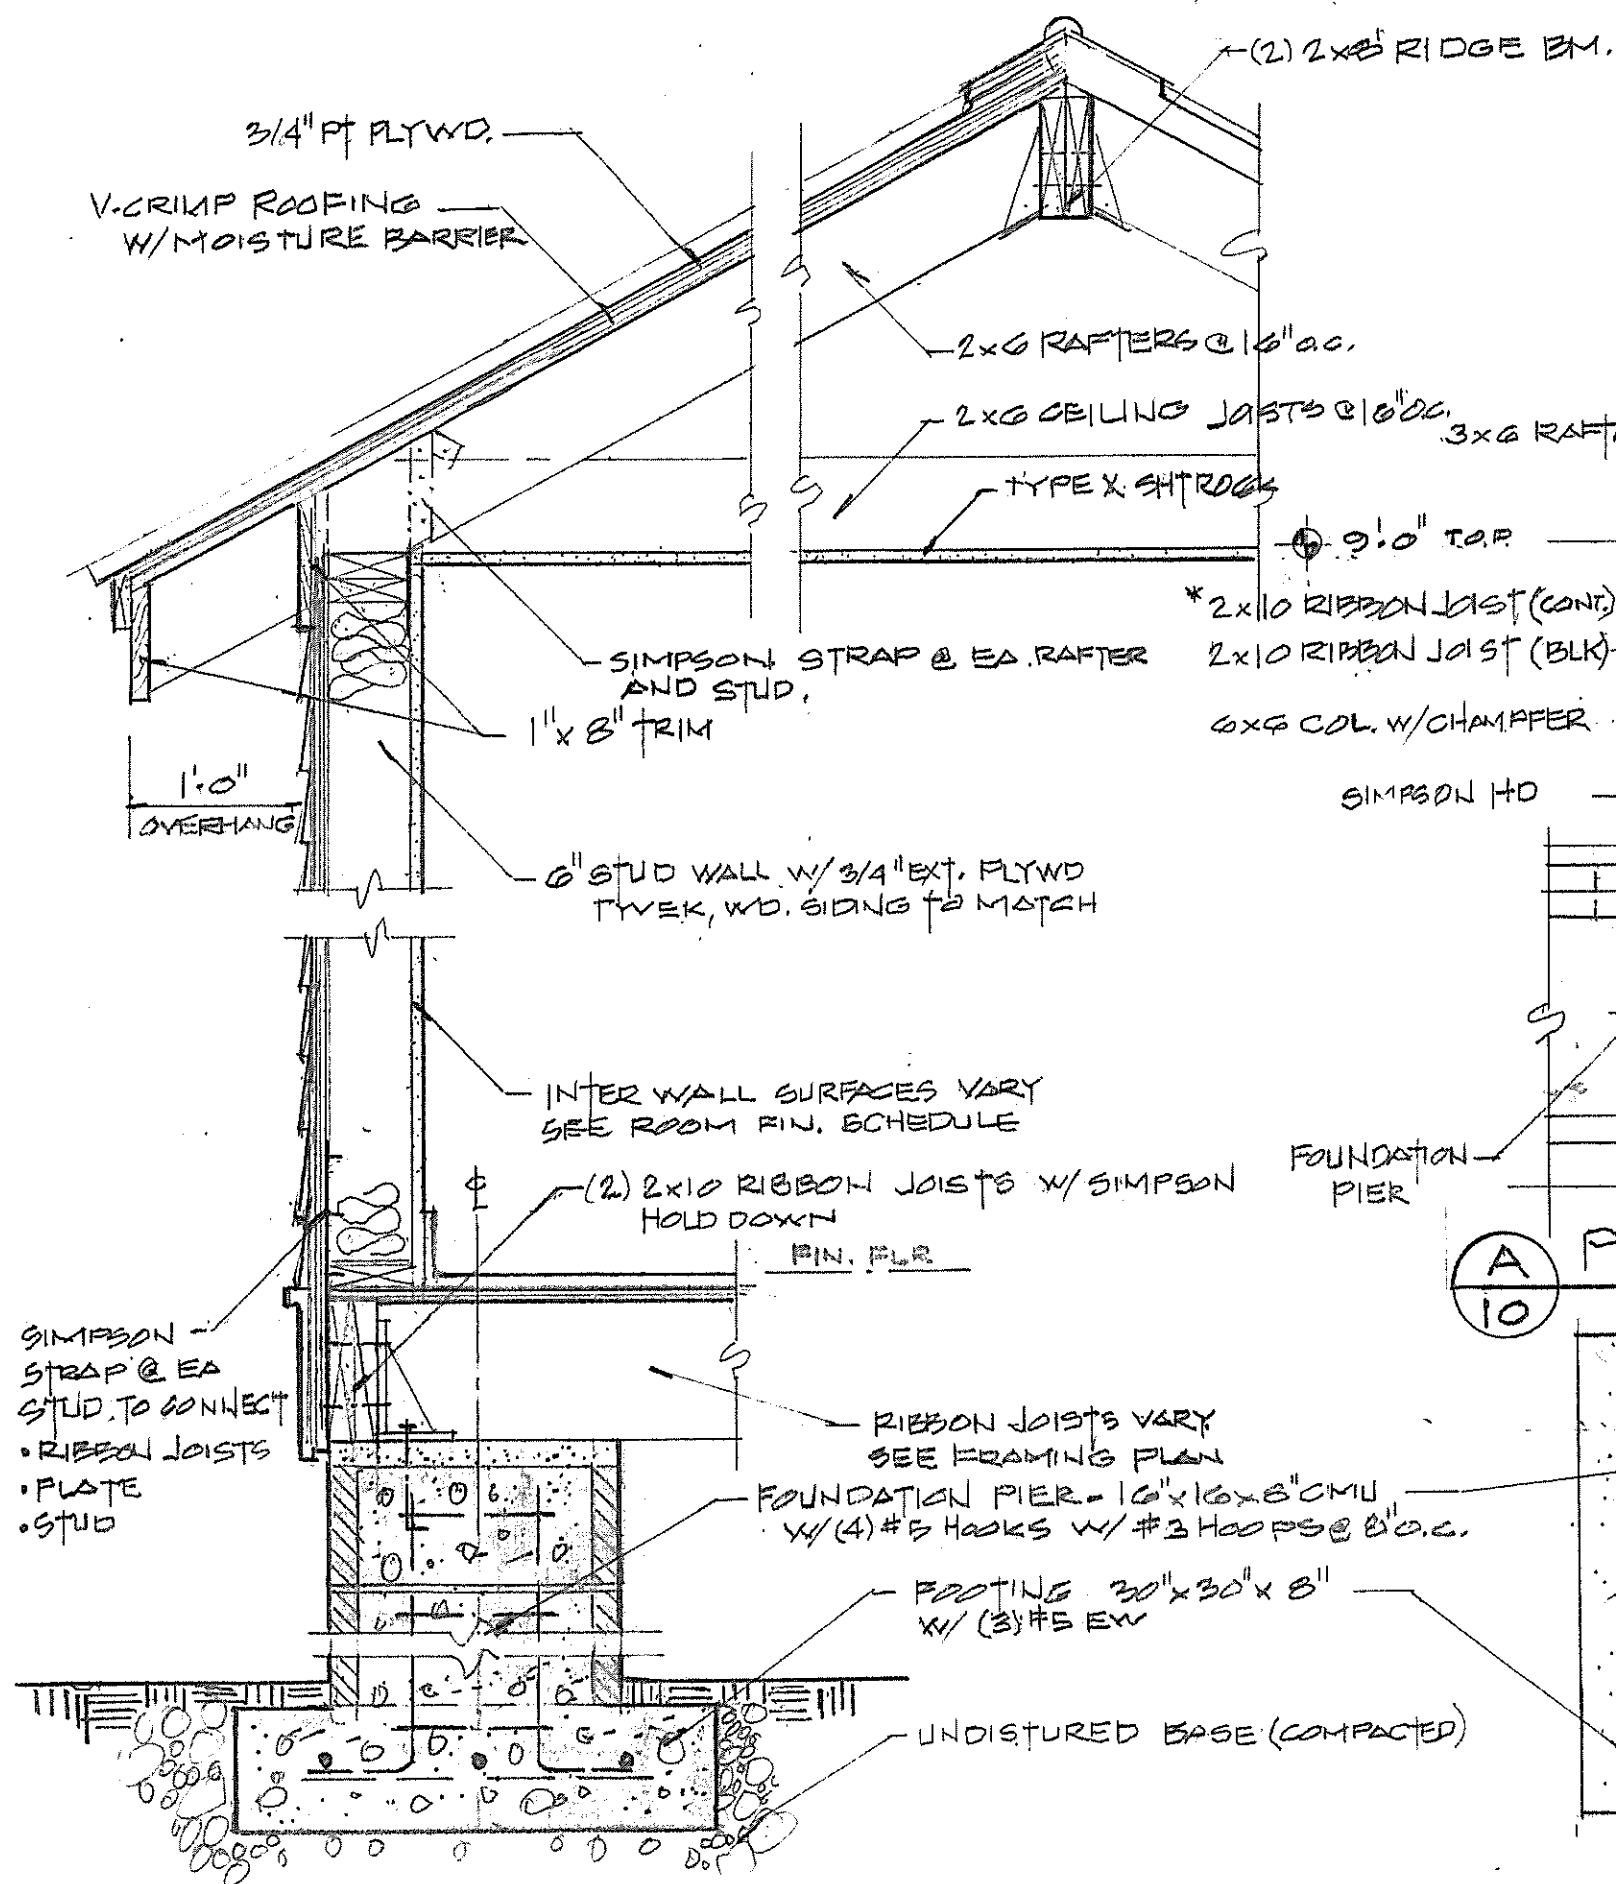 (2) 2x8 RIDGE BM.
3/4" PT PLYWD.
V-CRIMP ROOFING
W/MOISTURE BARRIER
2x6 RAFTERS @ 16" O.C.
2x6 CEILING JOISTS @ 16" O.C.
3x6 RAFT
TYPE X SHTROCK
9'.0" T.O.P.
* 2x10 RIBBON JOIST (CONT.)
2x10 RIBBON JOIST (BLK)
SIMPSON STRAP @ EA. RAFTER
AND STUD.
1"x 8" TRIM
6x6 COL. W/CHAMFFER
SIMPSON HD
1'.0"
OVERHANG
6" STUD WALL W/ 3/4" EXT. PLYWD
TYVEK, WD. SIDING TO MATCH
INTER WALL SURFACES VARY
SEE ROOM FIN. SCHEDULE
FOUNDATION
PIER
(2) 2x10 RIBBON JOISTS W/ SIMPSON
HOLD DOWN
FIN. FLR
A
10
P
SIMPSON
STRAP @ EA
STUD. TO CONNECT
• RIBBON JOISTS
• PLATE
• STUD
RIBBON JOISTS VARY
SEE FRAMING PLAN
FOUNDATION PIER - 16"x16x8" CMU
W/(4) #5 HOOKS W/ #3 HOOPS @ 8" O.C.
FOOTING 30"x30"x 8"
W/ (3) #5 EW
UNDISTURED BASE (COMPACTED)